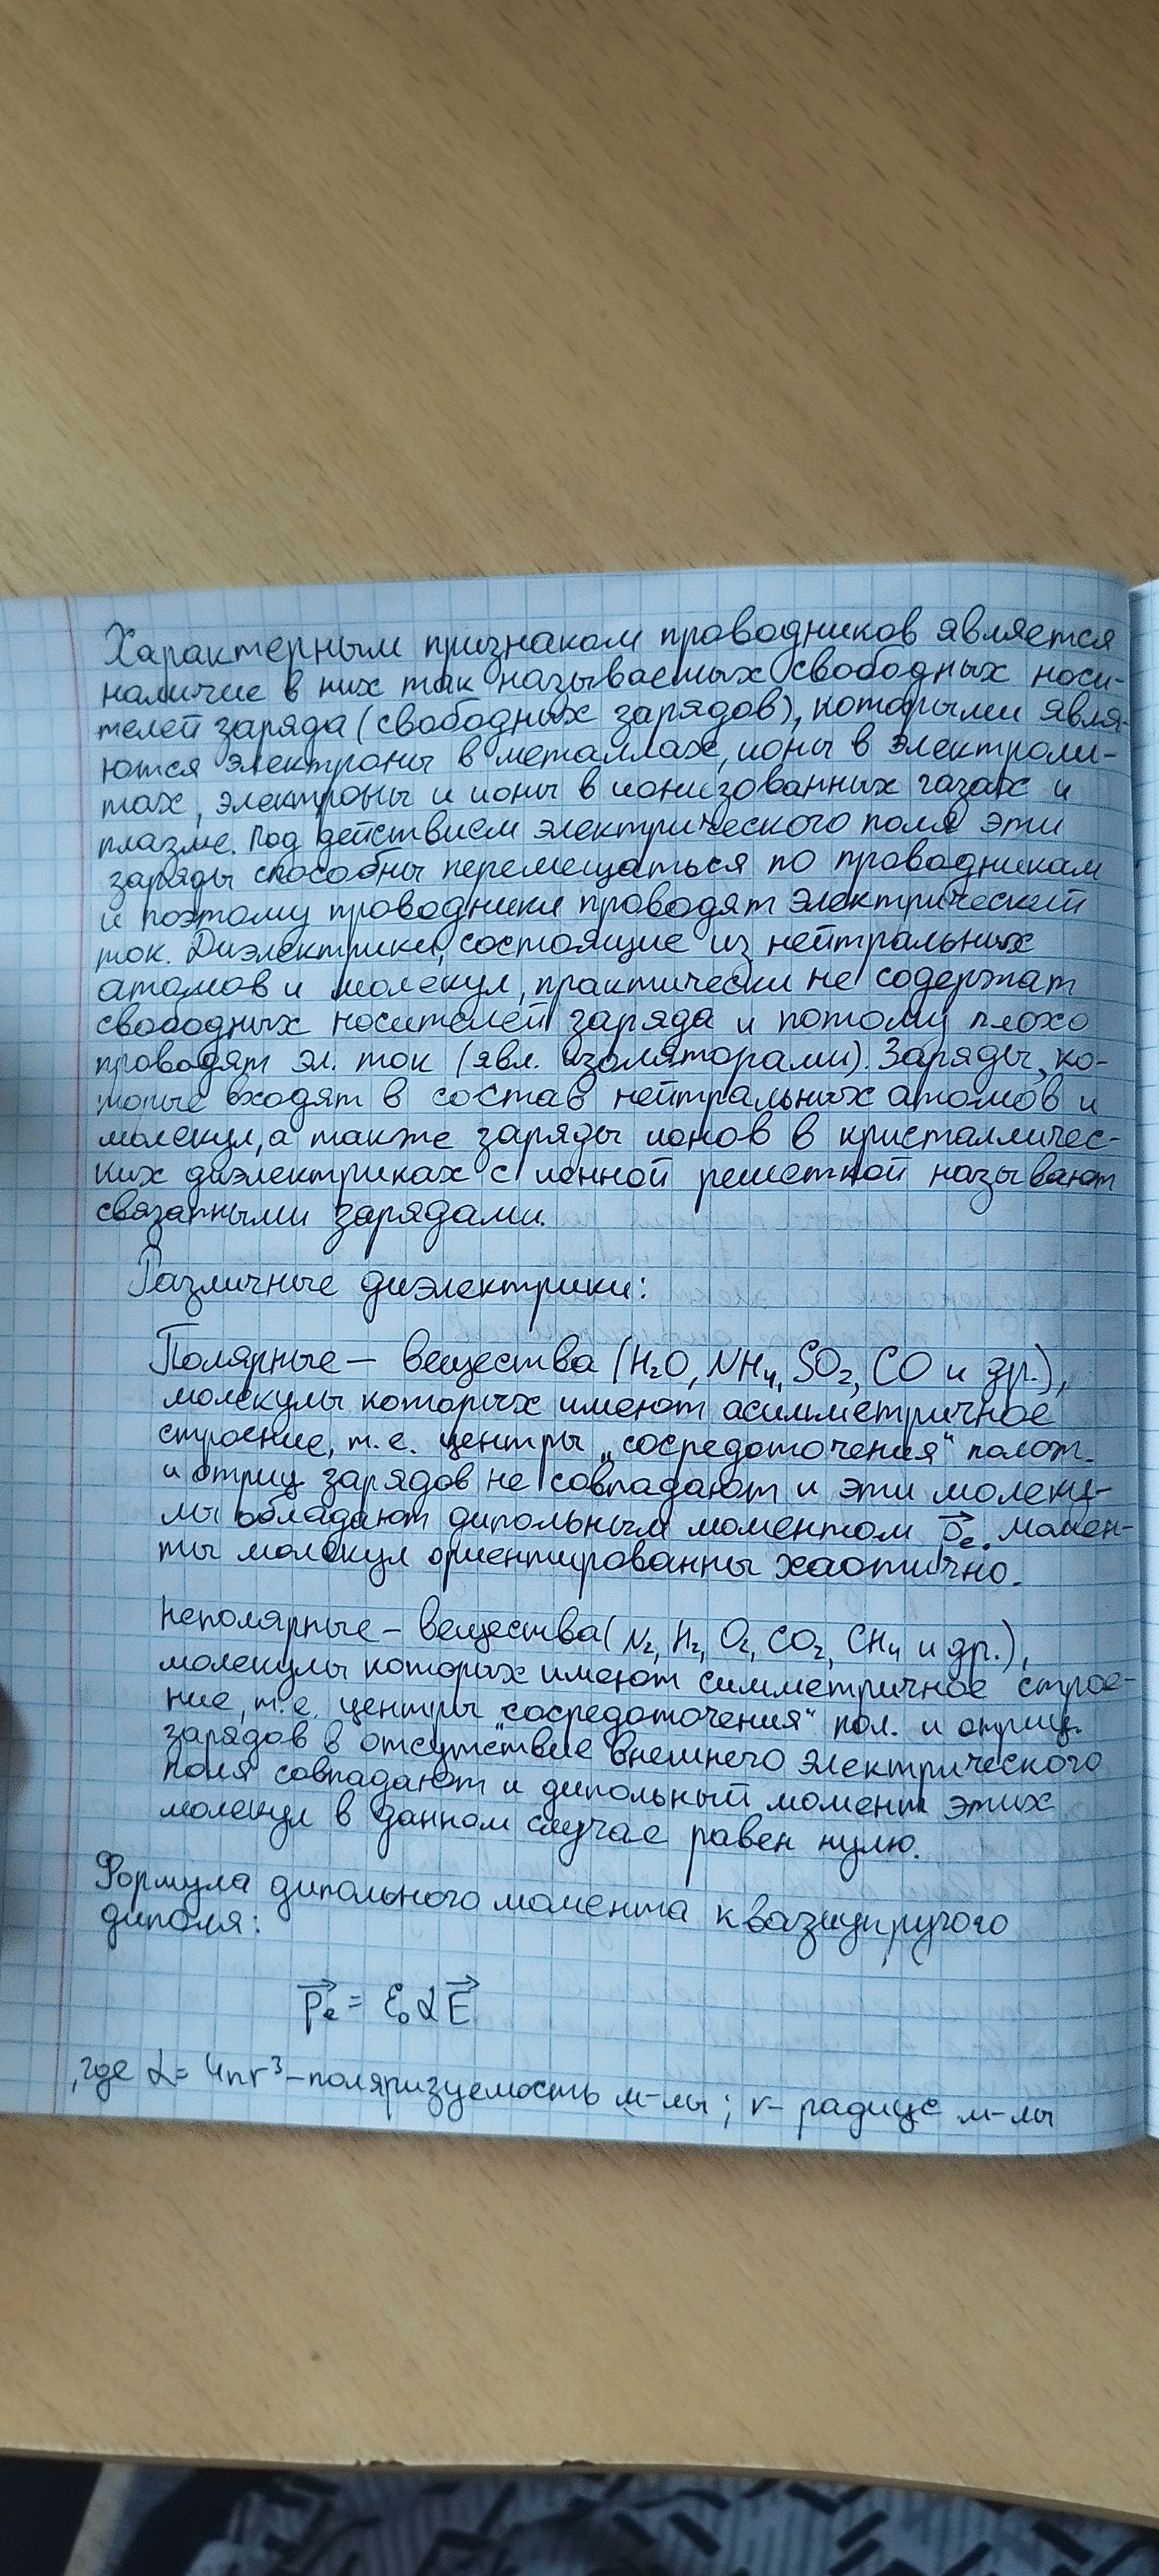 Характерным признаком проводников является
наличие в них так называемых свободных носи-
телей заряда (свободных зарядов), которыми явля-
ются электроны в металлах, ионы в электроли-
тах, электроны и ионы в ионизованных газах и
плазме. Под действием электрического поля эти
заряды способны перемещаться по проводникам
и поэтому проводники проводят электрический
ток. Диэлектрики, состоящие из нейтральных
атомов и молекул, практически не содержат
свободных носителей заряда и потому плохо
проводят эл. ток (явл. изоляторами). Заряды, ко-
торые входят в состав нейтральных атомов и
молекул, а также заряды ионов в кристалличес-
ких диэлектриках с ионной решеткой называют
связанными зарядами.
Различные диэлектрики:
Полярные — вещества (H₂O, NH₄, SO₂, CO и др.),
молекулы которых имеют асимметричное
строение, т.е. центры „сосредоточения“ полож.
и отриц зарядов не совпадают и эти молеку-
лы обладают дипольным моментом p⃗ₑ. Момен-
ты молекул ориентированны хаотично.
Неполярные — вещества (N₂, H₂, O₂, CO₂, CH₄ и др.),
молекулы которых имеют симметричное строе-
ние, т.е. центры „сосредоточения“ пол. и отриц.
зарядов в отсутствие внешнего электрического
поля совпадают и дипольный момент этих
молекул в данном случае равен нулю.
Формула дипольного момента квазиупругого
диполя:
p⃗ₑ = ε₀αE⃗
, где α = 4πr³ – поляризуемость м-лы ; r – радиус м-лы